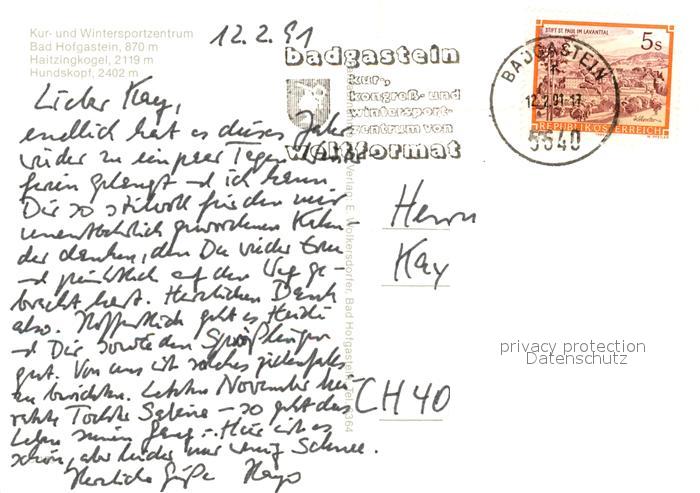 Kur- und Wintersportzentrum
Bad Hofgastein, 870 m
Haitzingkogel, 2119 m
Hundskopf, 2402 m
12.2.91
Lieber Kay,
endlich hat es dieses Jahr
wieder zu ein paar Tagen
ferien gelangt und ich kann
Dir so stilvoll für den mir
unentbehrlich gewordenen Kalen-
der danken, den Du wieder treu
und pünktlich auf den Weg ge-
bracht hast. Herzlichen Dank
also. Hoffentlich geht es Heidi
und Dir sowie den Sprößlingen
gut. Von uns ist solches jedenfalls
zu berichten. Letzten November hei-
ratete Tochter Sabine – so geht das
Leben seinen Gang... Hier ist es
schön, aber leider nur wenig Schnee.
Herzliche Grüße Hayo
badgastein
kur-,
kongreß- und
wintersport-
zentrum von
weltformat
Verlag E. Wolkersdorfer, Bad Hofgastein, Tel. 6364
STIFT ST. PAUL IM LAVANTTAL
5s
REPUBLIK ÖSTERREICH
BADGASTEIN
12.2.91-17
5640
Herrn
Kay
CH 40
privacy protection
Datenschutz